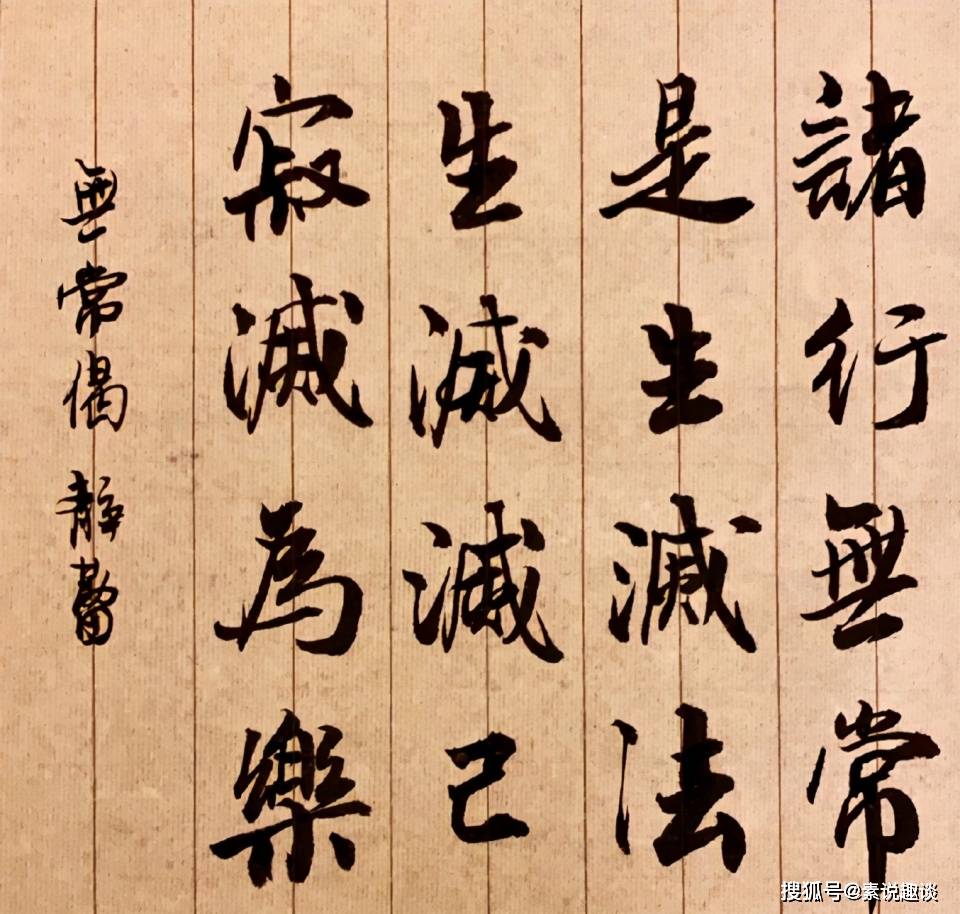 諸行無常
是生滅法
生滅滅已
寂滅為樂
無常偈 靜蕾
搜狐号@素说趣谈